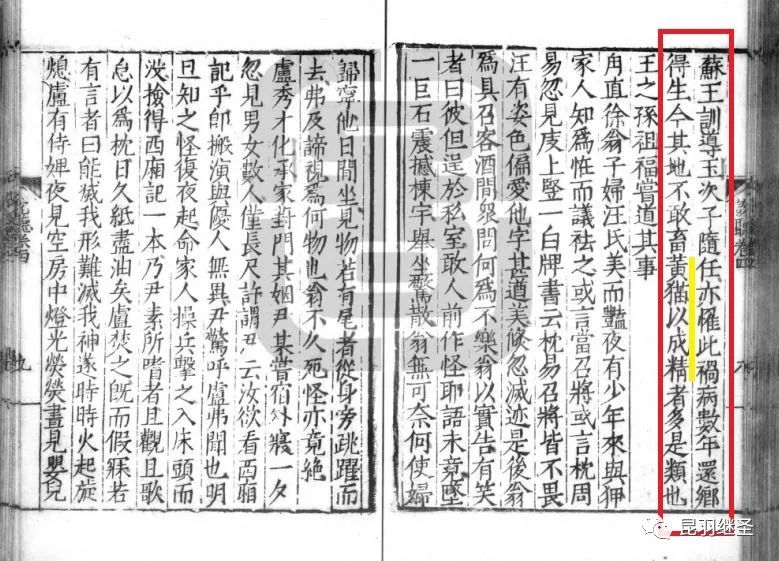 蘇王訓導玉次子隨任亦罹此禍病數年還鄉
得生今其地不敢畜黃猫以成精者多是類也
王之孫祖福嘗道其事
甪直徐翁子婦汪氏美而豔夜有少年來與狎
家人知爲恠而議祛之或言當召將或言枕周
易忽見庋上竪一白牌書云枕易召將皆不畏
汪有姿色偏愛他字甚遒美倐忽滅迹是後翁
爲具召客酒間衆問何爲不樂翁以實告有笑
者曰彼但逞於私室敢人前作怪耶語未竟墜
一巨石震撼棟宇舉坐驚散翁無可奈何使婦
歸寧他日間坐見物若有尾者從身旁跳躍而
去弗及諦視爲何物也翁不久死怪亦竟絶
盧秀才化承家對門其姻尹某嘗宿外寢一夕
忽見男女數人僅長尺許謂尹云汝欲看西廂
記乎卽搬演與優人無異尹驚呼盧弗聞也明
旦知之怪復夜起命家人操兵擊之入床頭而
沒撿得西廂記一本乃尹素所嗜者且觀且歌
怠以爲枕日久紙盡油矣盧焚之旣而假寐若
有言者曰能滅我形難滅我神遂時時火起旋
熄盧有侍婢夜見空房中燈光熒熒晝見嬰兒
昆羽继圣